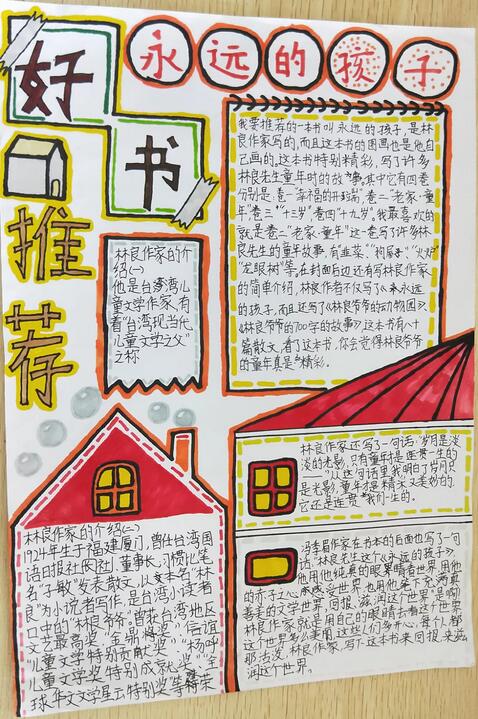 好书
推荐
永远的孩子
我要推荐的一本书叫永远的孩子,是林
良作家写的,而且这本书的图画也是他自
己画的,这本书特别精彩,写了许多
林良先生童年时的故事。其中它有四卷
分别是:卷一"幸福的开端,卷二"老家·童
年"卷三"十三岁"卷四"十九岁"。我最喜欢的
就是卷二"老家·童年"这一卷写了许多林
良先生的童年故事,有"韭菜""狗尾子""火炉"
"龙眼树"等,在封面后边还有写林良作家
的简单介绍,林良作者不仅写了《永远
的孩子,而且还写了《林良爷爷的动物园》、
《林良爷爷的700字的故事》,这本书有八十
篇散文,看了这本书,你会觉得林良爷爷
的童年真是精彩。
林良作家的介
绍(一)
他是台湾湾儿
童文学作家,有
着"台湾现当代
儿童文学之父"
之称
林良作家还写了一句话:"岁月是淡
淡的光影,只有童年是连贯一生的
"以这句话里我明白了岁月只
是光影,童年才是精木又美好的,
它还是连贯我们一生的。
林良作家的介绍(二)
1924年生于福建厦门,曾任台湾国
语日报社社,董事长,习惯以笔
名"子敏"发表散文,以本名"林
良"为小说者写作,是台湾小读者
口中的"林良爷爷",曾获台湾地区
文艺最高奖,"金鼎奖""信谊
儿童文学特别贡献奖""杨呼
儿童文学奖特别成就奖""全
球华文文学星云特别奖等荣
冯季眉作家在书本的后面也写了一句
话:"林良先生这个《永远的孩子》,
他用他纯真的眼界睛看世界,用他
的赤子之心感受世界,也用他笔下充满真
善美的文学世界,回报滋润这个世界"是啊!
林良作家就是用自己的眼睛去看这个世界,
这个世界多么美丽,这些人们多开心,每个人都
那活泼,林良作家,写下这本书来回报来滋
润这个世界。